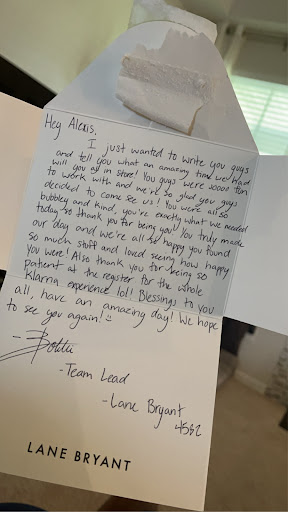 Hey Alexis,
I just wanted to write you guys
and tell you what an amazing time we had
with you all in store! You guys were soooo fun
to work with and we're so glad you guys
decided to come see us! You were all so
bubbley and kind, you're exactly what we needed
today so thank you for being you! You truly made
our day and we're all so happy you found
so much stuff and loved seeing how happy
you were! Also thank you for being so
patient at the register for the whole
Klarna experience lol! Blessings to you
all, have an amazing day! We hope
to see you again!
-
-Team Lead
-Lane Bryant
4562
LANE BRYANT